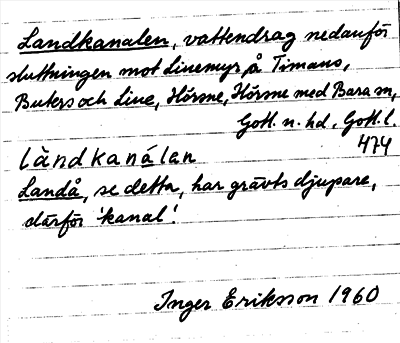 Landkanalen, vattendrag nedanför
sluttningen mot Linemyr på Timans,
Buters och Line, Hörsne, Hörsne med Bara sn,
Gotl. n. hd, Gotl. l.
474
làndkanálan
Landå, se detta, har grävts djupare,
därför 'kanal'.
Inger Eriksson 1960